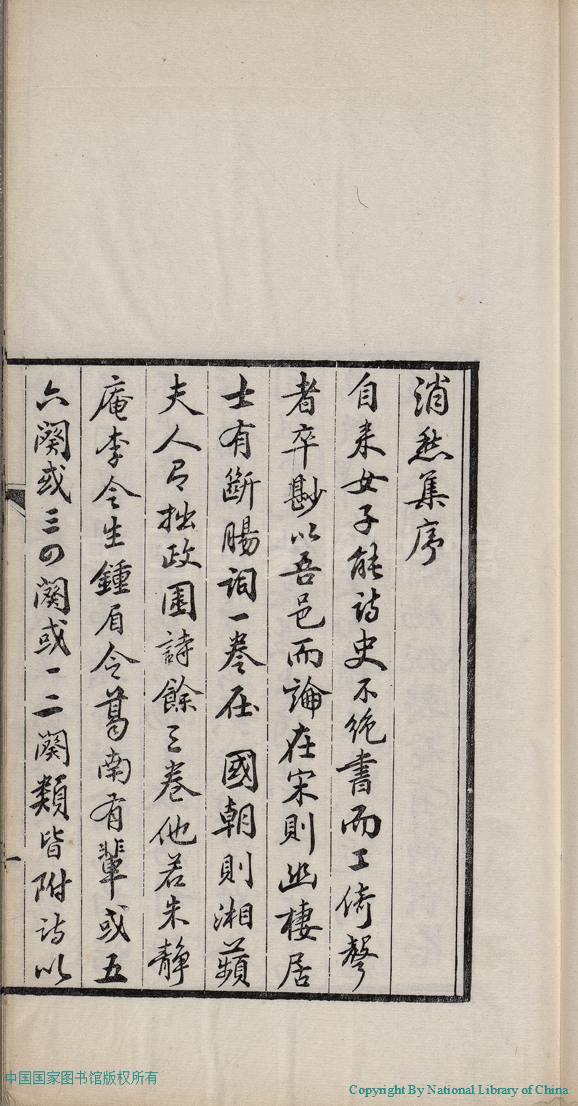 消愁集序
自来女子能詩史不绝書而工倚聲
者卒尠以吾邑而論在宋則幽棲居
士有斷腸詞一卷在國朝則湘蘋
夫人有拙政園詩餘三卷他若朱靜
庵李今生鍾眉令葛南有輩或五
六闋或三四闋或一二闋類皆附詩以
中国国家图书馆版权所有
Copyright By National Library of China